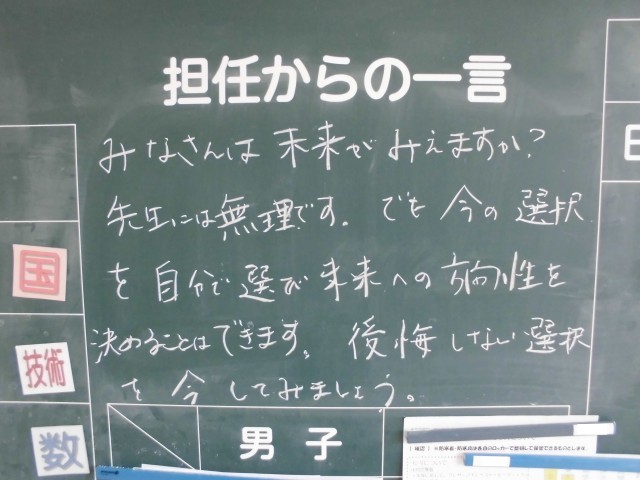 担任からの一言
みなさんは未来がみえますか?
先生には無理です。でも今の選択
を自分で選び未来への方向性を
決めることはできます。後悔しない選択
を今してみましょう。
国
技術
数
男子